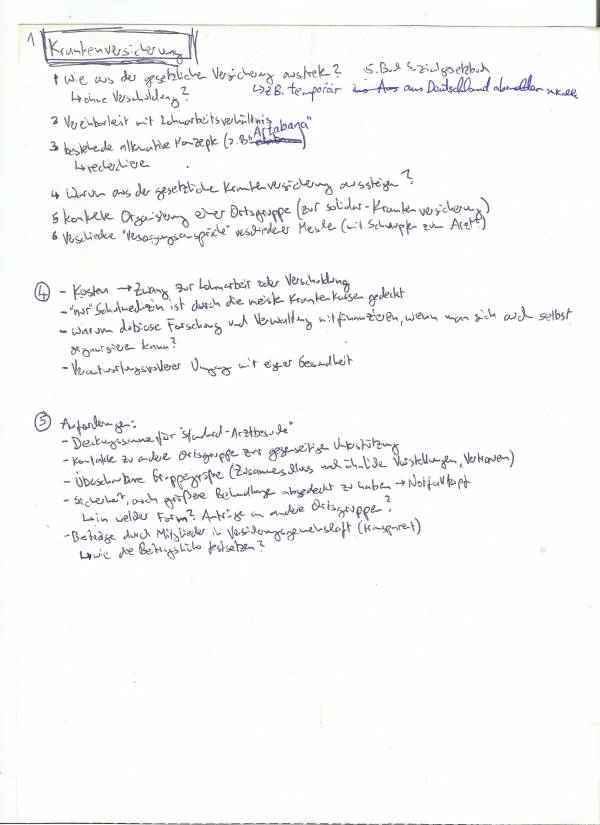 1 Krankenversicherung
1 Wie aus der gesetzlichen Versicherung austreten? 5. Buch Sozialgesetzbuch
↳ ohne Verschuldung? ↳ z.B. temporär aus Deutschland abmelden
2 Vereinbarkeit mit Lohnarbeitsverhältnis
3 bestehende alternative Konzepte (z.B. "Artabana")
↳ recherchieren
4 Warum aus der gesetzliche Krankenversicherung aussteigen?
5 Konkrete Organisierung einer Ortsgruppe (zur solidar-Krankenversicherung)
6 Verschiedene "Versorgungsansprüche" verschiedener Menschen (mit Schnupfen zum Arzt?)
④ - Kosten → Zwang zur Lohnarbeit oder Verschuldung
- "nur" Schulmedizin ist durch die meisten Krankenkassen gedeckt
- warum dubiose Forschung und Verwaltung mitfinanzieren, wenn man sich auch selbst
organisieren kann?
- Verantwortungsvollerer Umgang mit eigener Gesundheit
⑤ Anforderungen:
- Deckungssumme für "Standard-Arztbesuche"
- Kontakte zu andere Ortsgruppe zur gegenseitigen Unterstützung
- Überschaubare Gruppengröße (Zusammenschluss und ähnliche Vorstellungen, Vertrauen)
- Sicherheit, auch größere Behandlungen abgedeckt zu haben → Notfalltopf
↳ in welcher Form? Anträge an andere Ortsgruppen?
- Beträge durch Mitglieder in Versicherungsgemeinschaft (transparent)
↳ wie die Betragshöhe festsetzen?